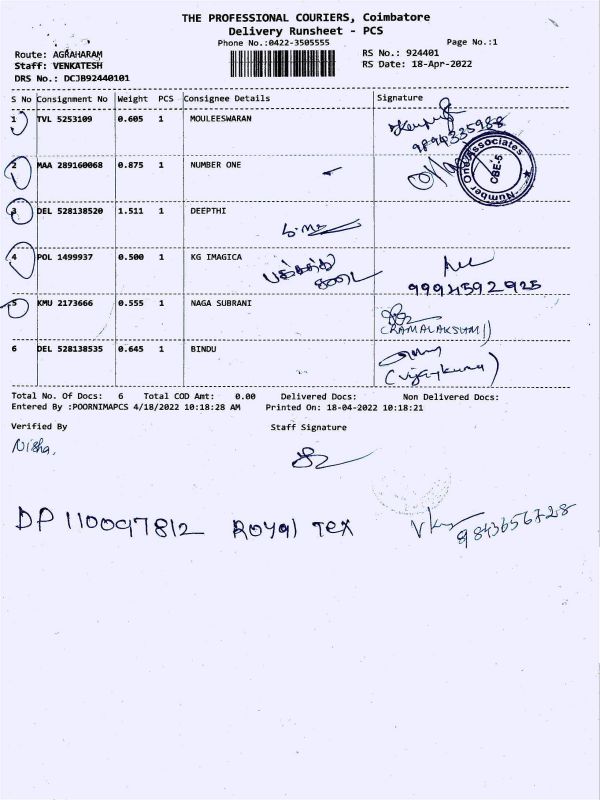 THE PROFESSIONAL COURIERS, Coimbatore
Delivery Runsheet - PCS
Phone No.:0422-3505555 Page No.:1
Route: AGRAHARAM RS No.: 924401
Staff: VENKATESH RS Date: 18-Apr-2022
DRS No.: DCJB92440101
S No Consignment No Weight PCS Consignee Details Signature
1 TVL 5253109 0.605 1 MOULEESWARAN
9894335988
2 MAA 289160068 0.875 1 NUMBER ONE
Number One Associates CBE-5
3 DEL 528138520 1.511 1 DEEPTHI
4 POL 1499937 0.500 1 KG IMAGICA
9994592925
5 KMU 2173666 0.555 1 NAGA SUBRANI
(RAMALAKSHMI)
6 DEL 528138535 0.645 1 BINDU
(Vijaykumar)
Total No. Of Docs: 6 Total COD Amt: 0.00 Delivered Docs: Non Delivered Docs:
Entered By :POORNIMAPCS 4/18/2022 10:18:28 AM Printed On: 18-04-2022 10:18:21
Verified By Staff Signature
Nisha,
DP 110097812 Royal Tex
9843656728